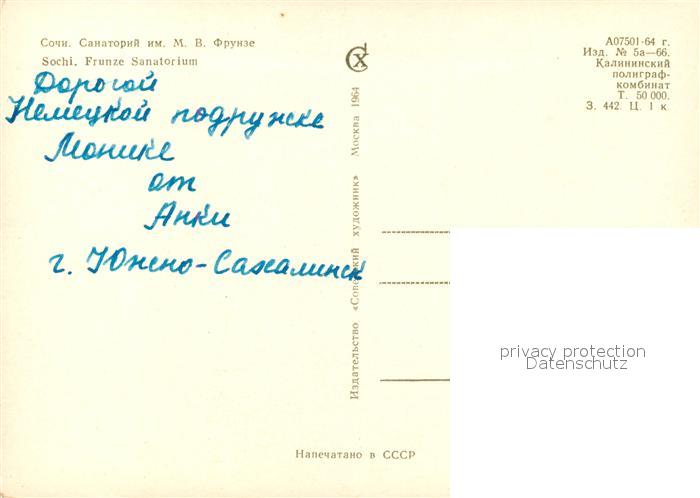 Сочи. Санаторий им. М. В. Фрунзе
Sochi. Frunze Sanatorium
Дорогой
Немецкой подружке
Монике
от
Анки
г. Южно-Сахалинск
Издательство «Советский художник» Москва 1964
СХ
А07501-64 г.
Изд. № 5а—66.
Калининский
полиграф-
комбинат
Т. 50 000.
З. 442. Ц. 1 к.
privacy protection
Datenschutz
Напечатано в СССР